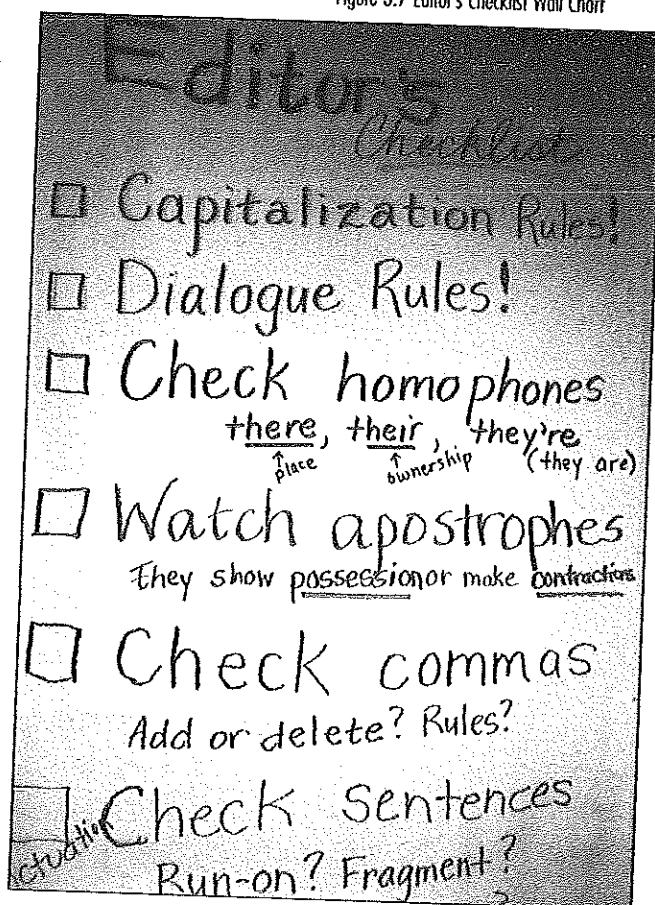 Figure 5.7 Editor's Checklist Wall Chart
Editor's
Checklist
Capitalization Rules!
Dialogue Rules!
Check homophones
there, their, they're
place ownership (they are)
Watch apostrophes
They show possession or make contractions
Check commas
Add or delete? Rules?
Check Sentences
ctuation
Run-on? Fragment?